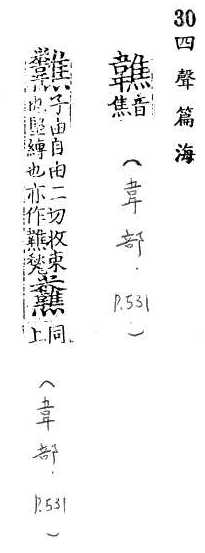 30四聲篇海
音焦
(韋部. P.531)
子由自由二切收束
也堅縛也亦作
同
上
(韋部. P.531)